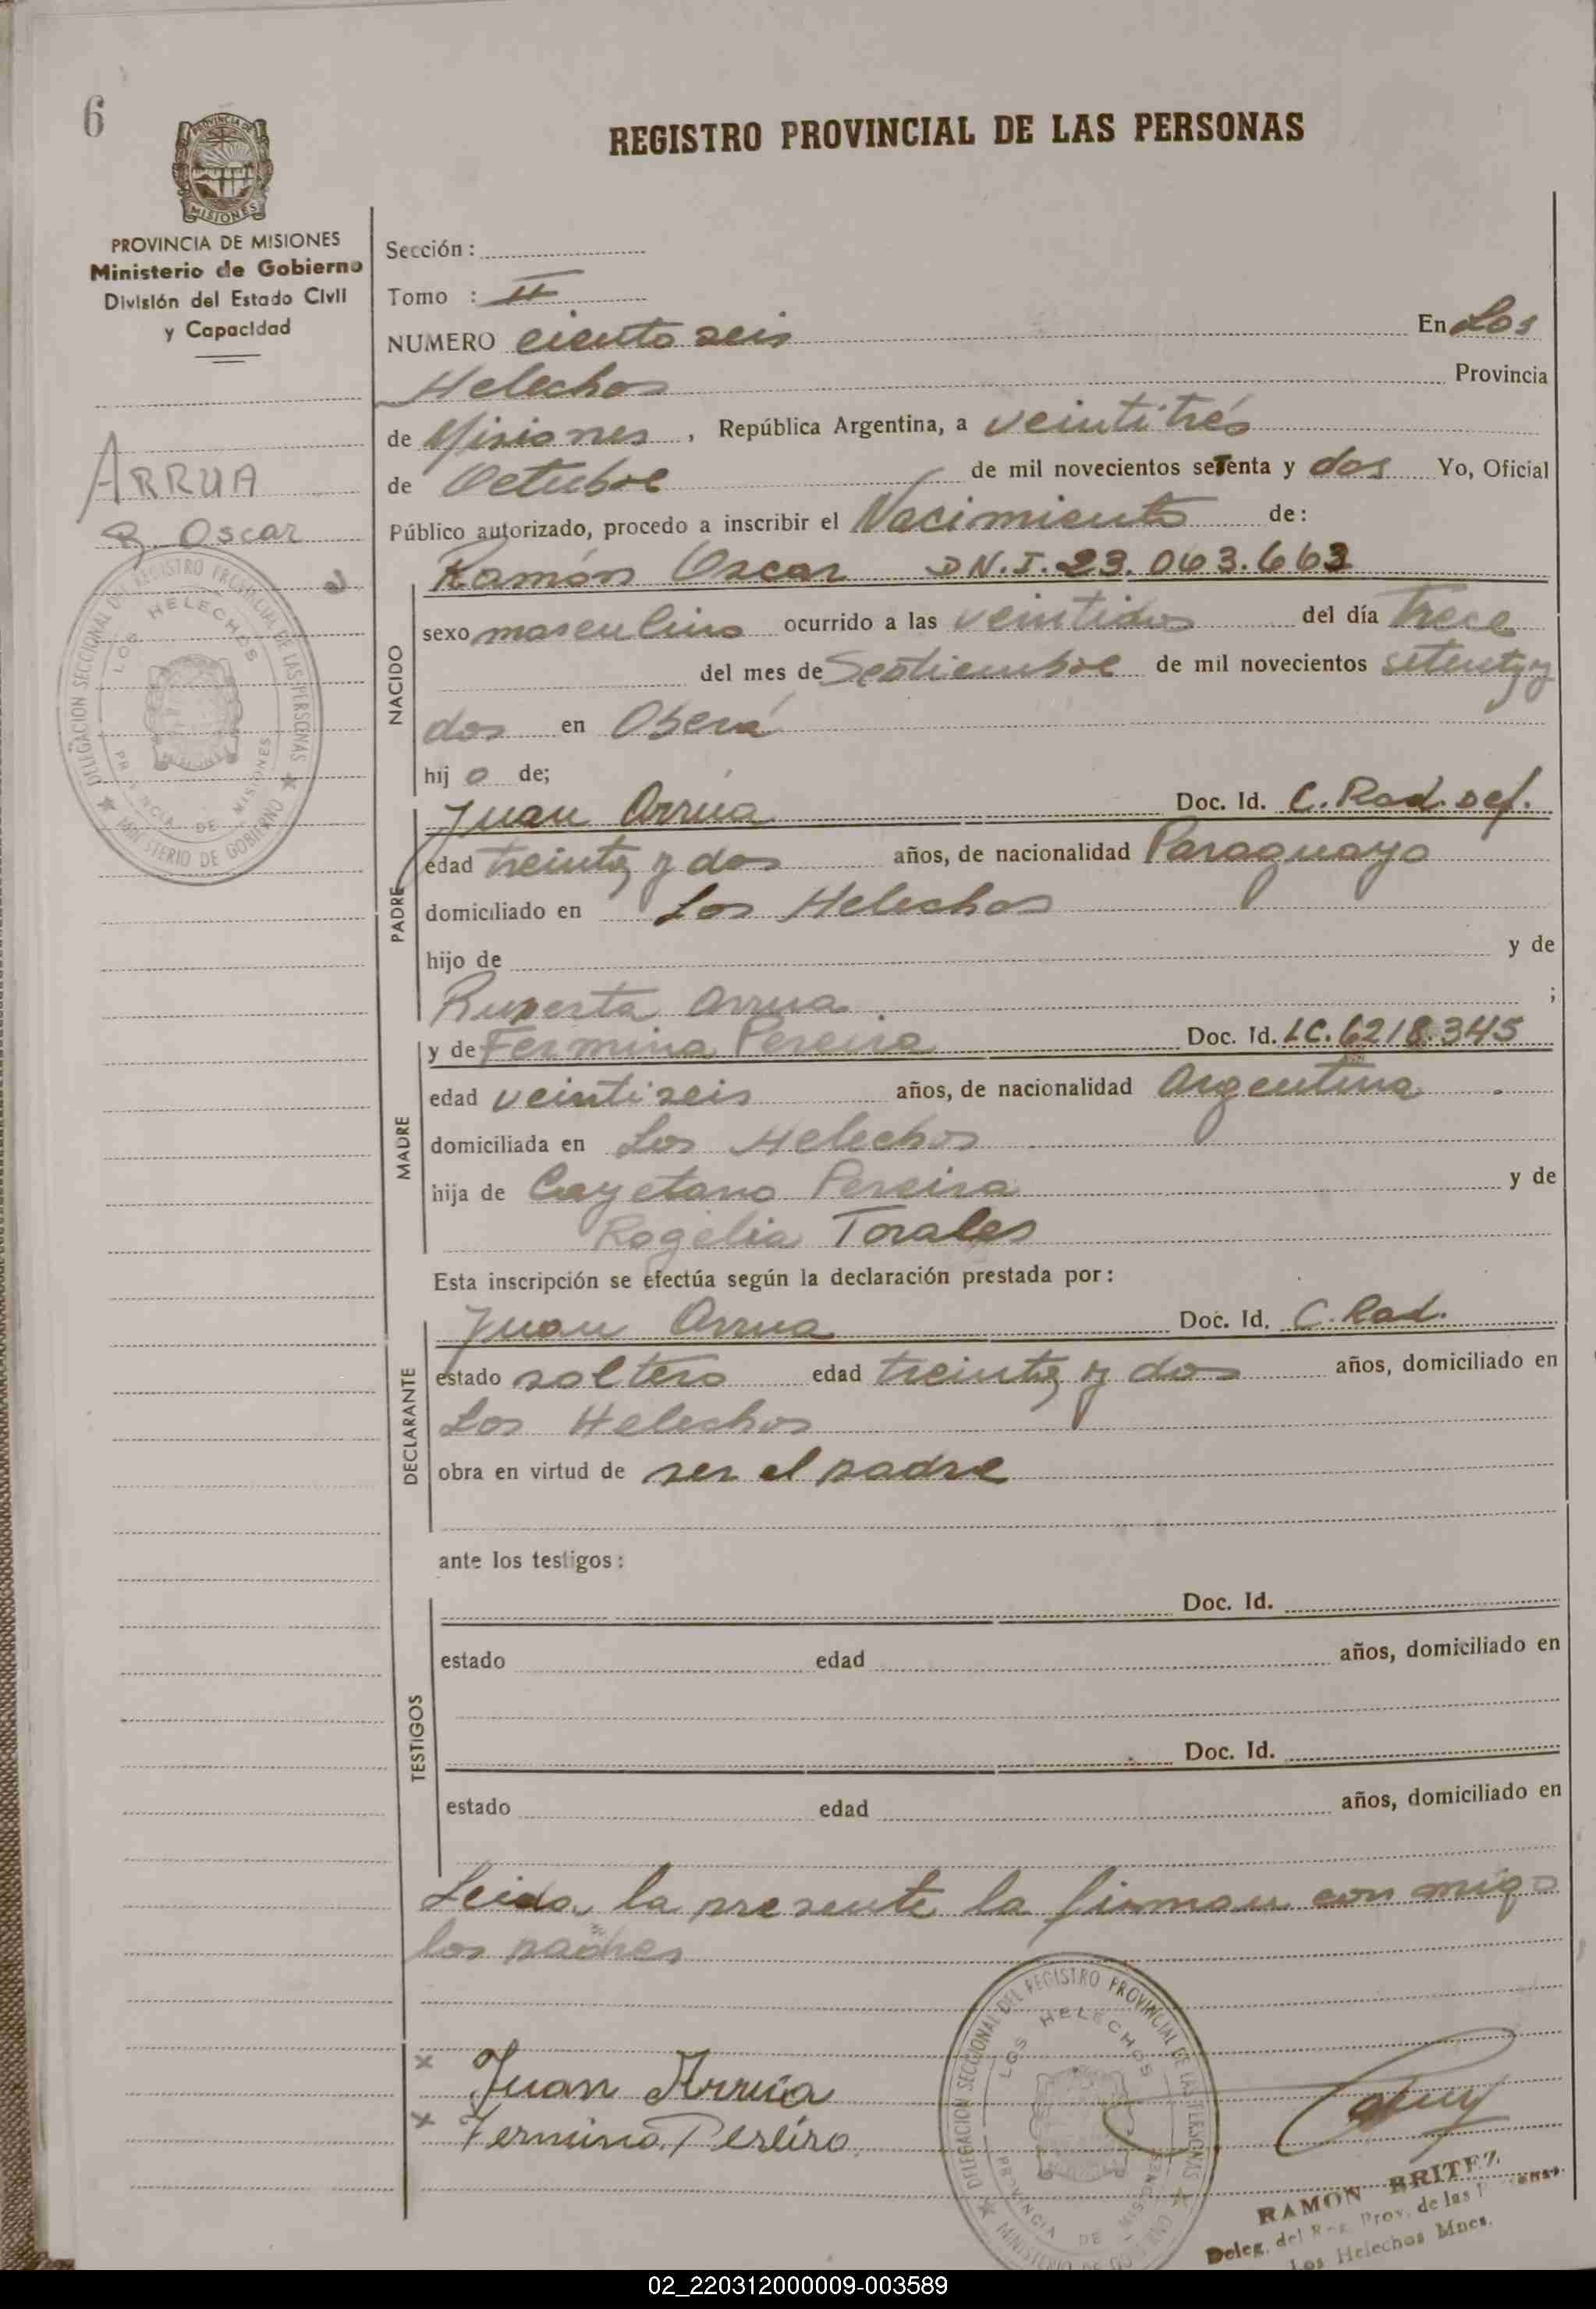 6
REGISTRO PROVINCIAL DE LAS PERSONAS
PROVINCIA DE MISIONES
MISIONES
PROVINCIA DE MISIONES
Ministerio de Gobierno
División del Estado Civil
y Capacidad
ARRUA
R. Oscar
DELEGACION SECCIONAL DEL REGISTRO PROVINCIAL DE LAS PERSONAS
LOS HELECHOS
PROVINCIA DE MISIONES
MINISTERIO DE GOBIERNO
Sección:
Tomo : II
NUMERO ciento seis En Los
Helechos Provincia
de Misiones, República Argentina, a veintitrés
de Octubre de mil novecientos seTenta y dos Yo, Oficial
Público autorizado, procedo a inscribir el Nacimiento de:
Ramón Oscar D.N.I. 23.063.663
NACIDO
sexo masculino ocurrido a las veintidos del día Trece
del mes de Septiembre de mil novecientos setenta y
dos en Oberá
hijo de;
PADRE
Juan Arrúa Doc. Id. C. Rad. Def.
edad treinta y dos años, de nacionalidad Paraguayo
domiciliado en Los Helechos
hijo de y de
Ruperta Arrua ;
MADRE
y de Fermina Pereira Doc. Id. LC. 6218.345
edad veintiseis años, de nacionalidad Argentina
domiciliada en Los Helechos
hija de Cayetano Pereira y de
Rogelia Torales
Esta inscripción se efectúa según la declaración prestada por:
DECLARANTE
Juan Arrua Doc. Id. C. Rad.
estado soltero edad treinta y dos años, domiciliado en
Los Helechos
obra en virtud de ser el padre
ante los testigos:
TESTIGOS
Doc. Id.
estado edad años, domiciliado en
Doc. Id.
estado edad años, domiciliado en
Leida, la presente la firman con migo
los padres
x Juan Arrúa
x Fermina Pereira
DELEGACION SECCIONAL DEL REGISTRO PROVINCIAL DE LAS PERSONAS
LOS HELECHOS
PROVINCIA DE MISIONES
MINISTERIO DE GOBIERNO
RAMON BRITEZ
Deleg. del Reg. Prov. de las Pers.
Los Helechos Mnes.
02_220312000009-003589